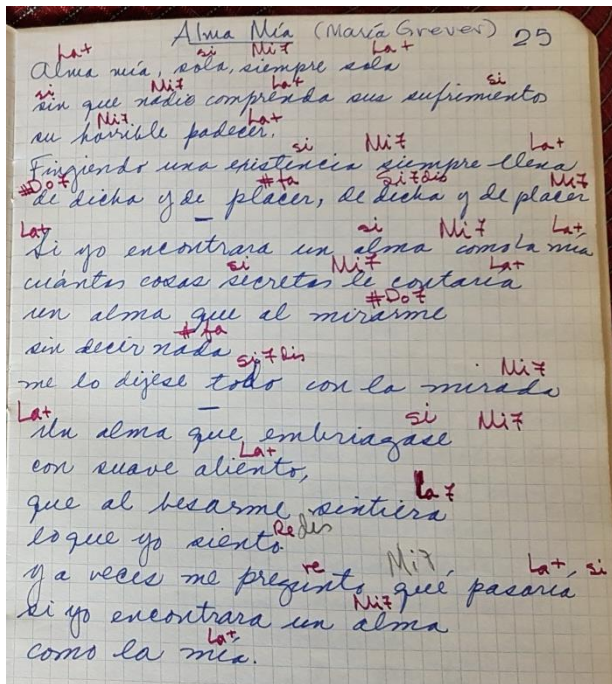 Alma Mía (María Grever) 25
La+ si Mi7 La+
Alma mía, sola, siempre sola
si Mi7 La+ si
sin que nadie comprenda sus sufrimientos
Mi7 La+
su horrible padecer.
si Mi7 La+
Fingiendo una existencia siempre llena
#Do7 #fa Si7dis Mi7
de dicha y de placer, de dicha y de placer
La+ si Mi7 La+
Si yo encontrara un alma como la mía
si Mi7 La+
cuántas cosas secretas le contaría
#Do7
un alma que al mirarme
#fa
sin decir nada
si7dis Mi7
me lo dijese todo con la mirada
La+ si Mi7
Un alma que embriagase
La+
con suave aliento,
La7
que al besarme sintiera
Re dis
lo que yo siento.
re Mi7 La+ si
y a veces me pregunto qué pasaría
Mi7
si yo encontrara un alma
La+
como la mía.